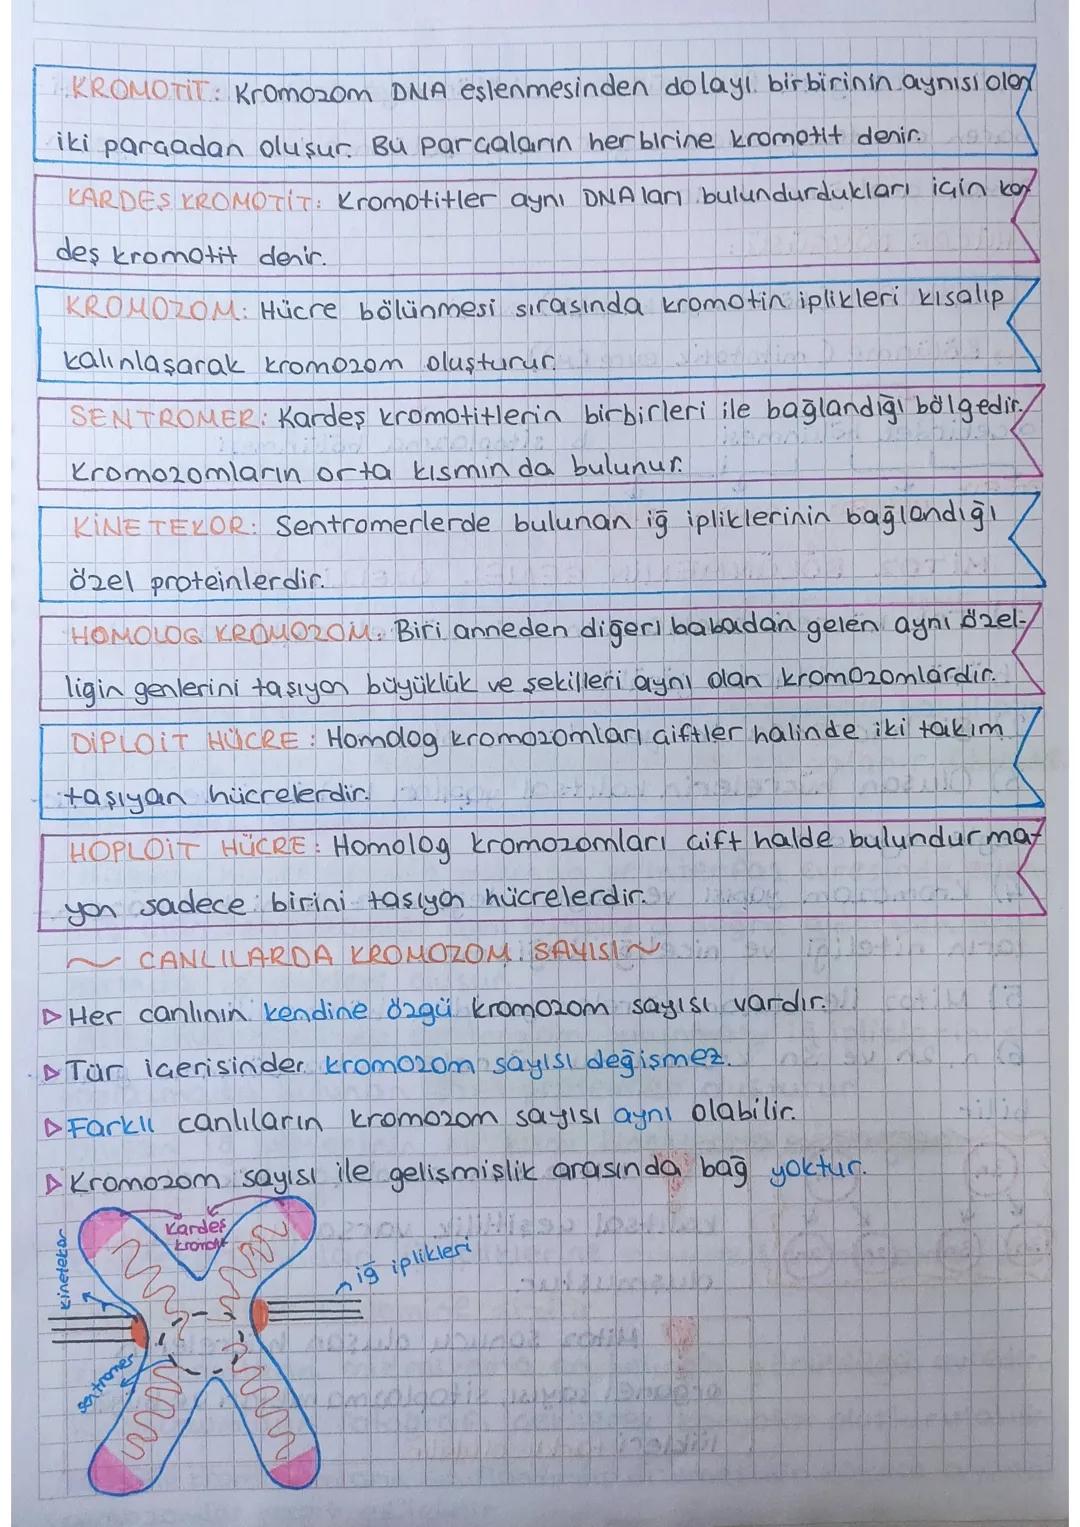 KROMOTİT: Kromozom DNA eşlenmesinden dolayı birbirinin aynısı olan
iki parçadan oluşur. Bu parçaların herbirine kromotit denir.
KARDEŞ KROMOTİT: Kromotitler aynı DNA ları bulundurdukları için kar
deş kromotit denir.
KROMOZOM: Hücre bölünmesi sırasında kromotin iplikleri kısalıp
kalınlaşarak kromozom oluşturur.
SENTROMER: Kardeş kromotitlerin birbirleri ile bağlandığı bölgedir.
Kromozomların orta kısmında bulunur.
KİNETEKOR: Sentromerlerde bulunan iğ ipliklerinin bağlandığı
özel proteinlerdir.
HOMOLOG KROMOZOM: Biri anneden diğeri babadan gelen aynı özel-
ligin genlerini taşıyan büyüklük ve şekilleri aynı olan kromozomlardır.
DİPLOİT HÜCRE: Homolog kromozomları çiftler halinde iki takım
taşıyan hücrelerdir.
HOPLOİT HÜCRE: Homolog kromozomları çift halde bulundurma-
yan sadece birini taşıyan hücrelerdir.
~ CANLILARDA KROMOZOM SAYISI ~
▷ Her canlının kendine özgü kromozom sayısı vardır.
▷ Tür içerisinder kromozom sayısı değişmez.
▷ Farklı canlıların kromozom sayısı aynı olabilir.
▷ Kromozom sayısı ile gelişmişlik arasında bağ yoktur.
Kardeş
kromotit
kinetekor
iğ iplikleri
sentromer